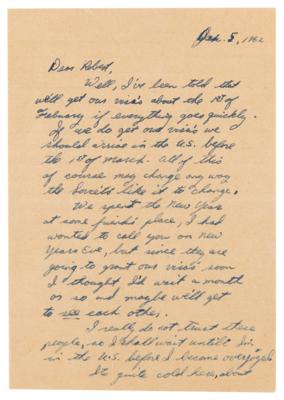 Jan. 5, 1962
Dear Robert,
Well, I've been told that
we'll get our visa's about the 1st of
Febuary if everything goes quickly.
If we do get our visa's we
should arrive in the U.S. before
the 1st of march. All of this
of course may change any way
the Soviets like it to change.
We spent the New Year
at some friend's place, I had
wanted to call you on New
Years Eve, but since they are
going to grant our visa's soon
I thought, I'd wait a month
or so and maybe we'll get
to see each other.
I really do not trust these
people, so I shall wait untill I'm
in the U.S. before I become overjoyed.
Its quite cold here, about